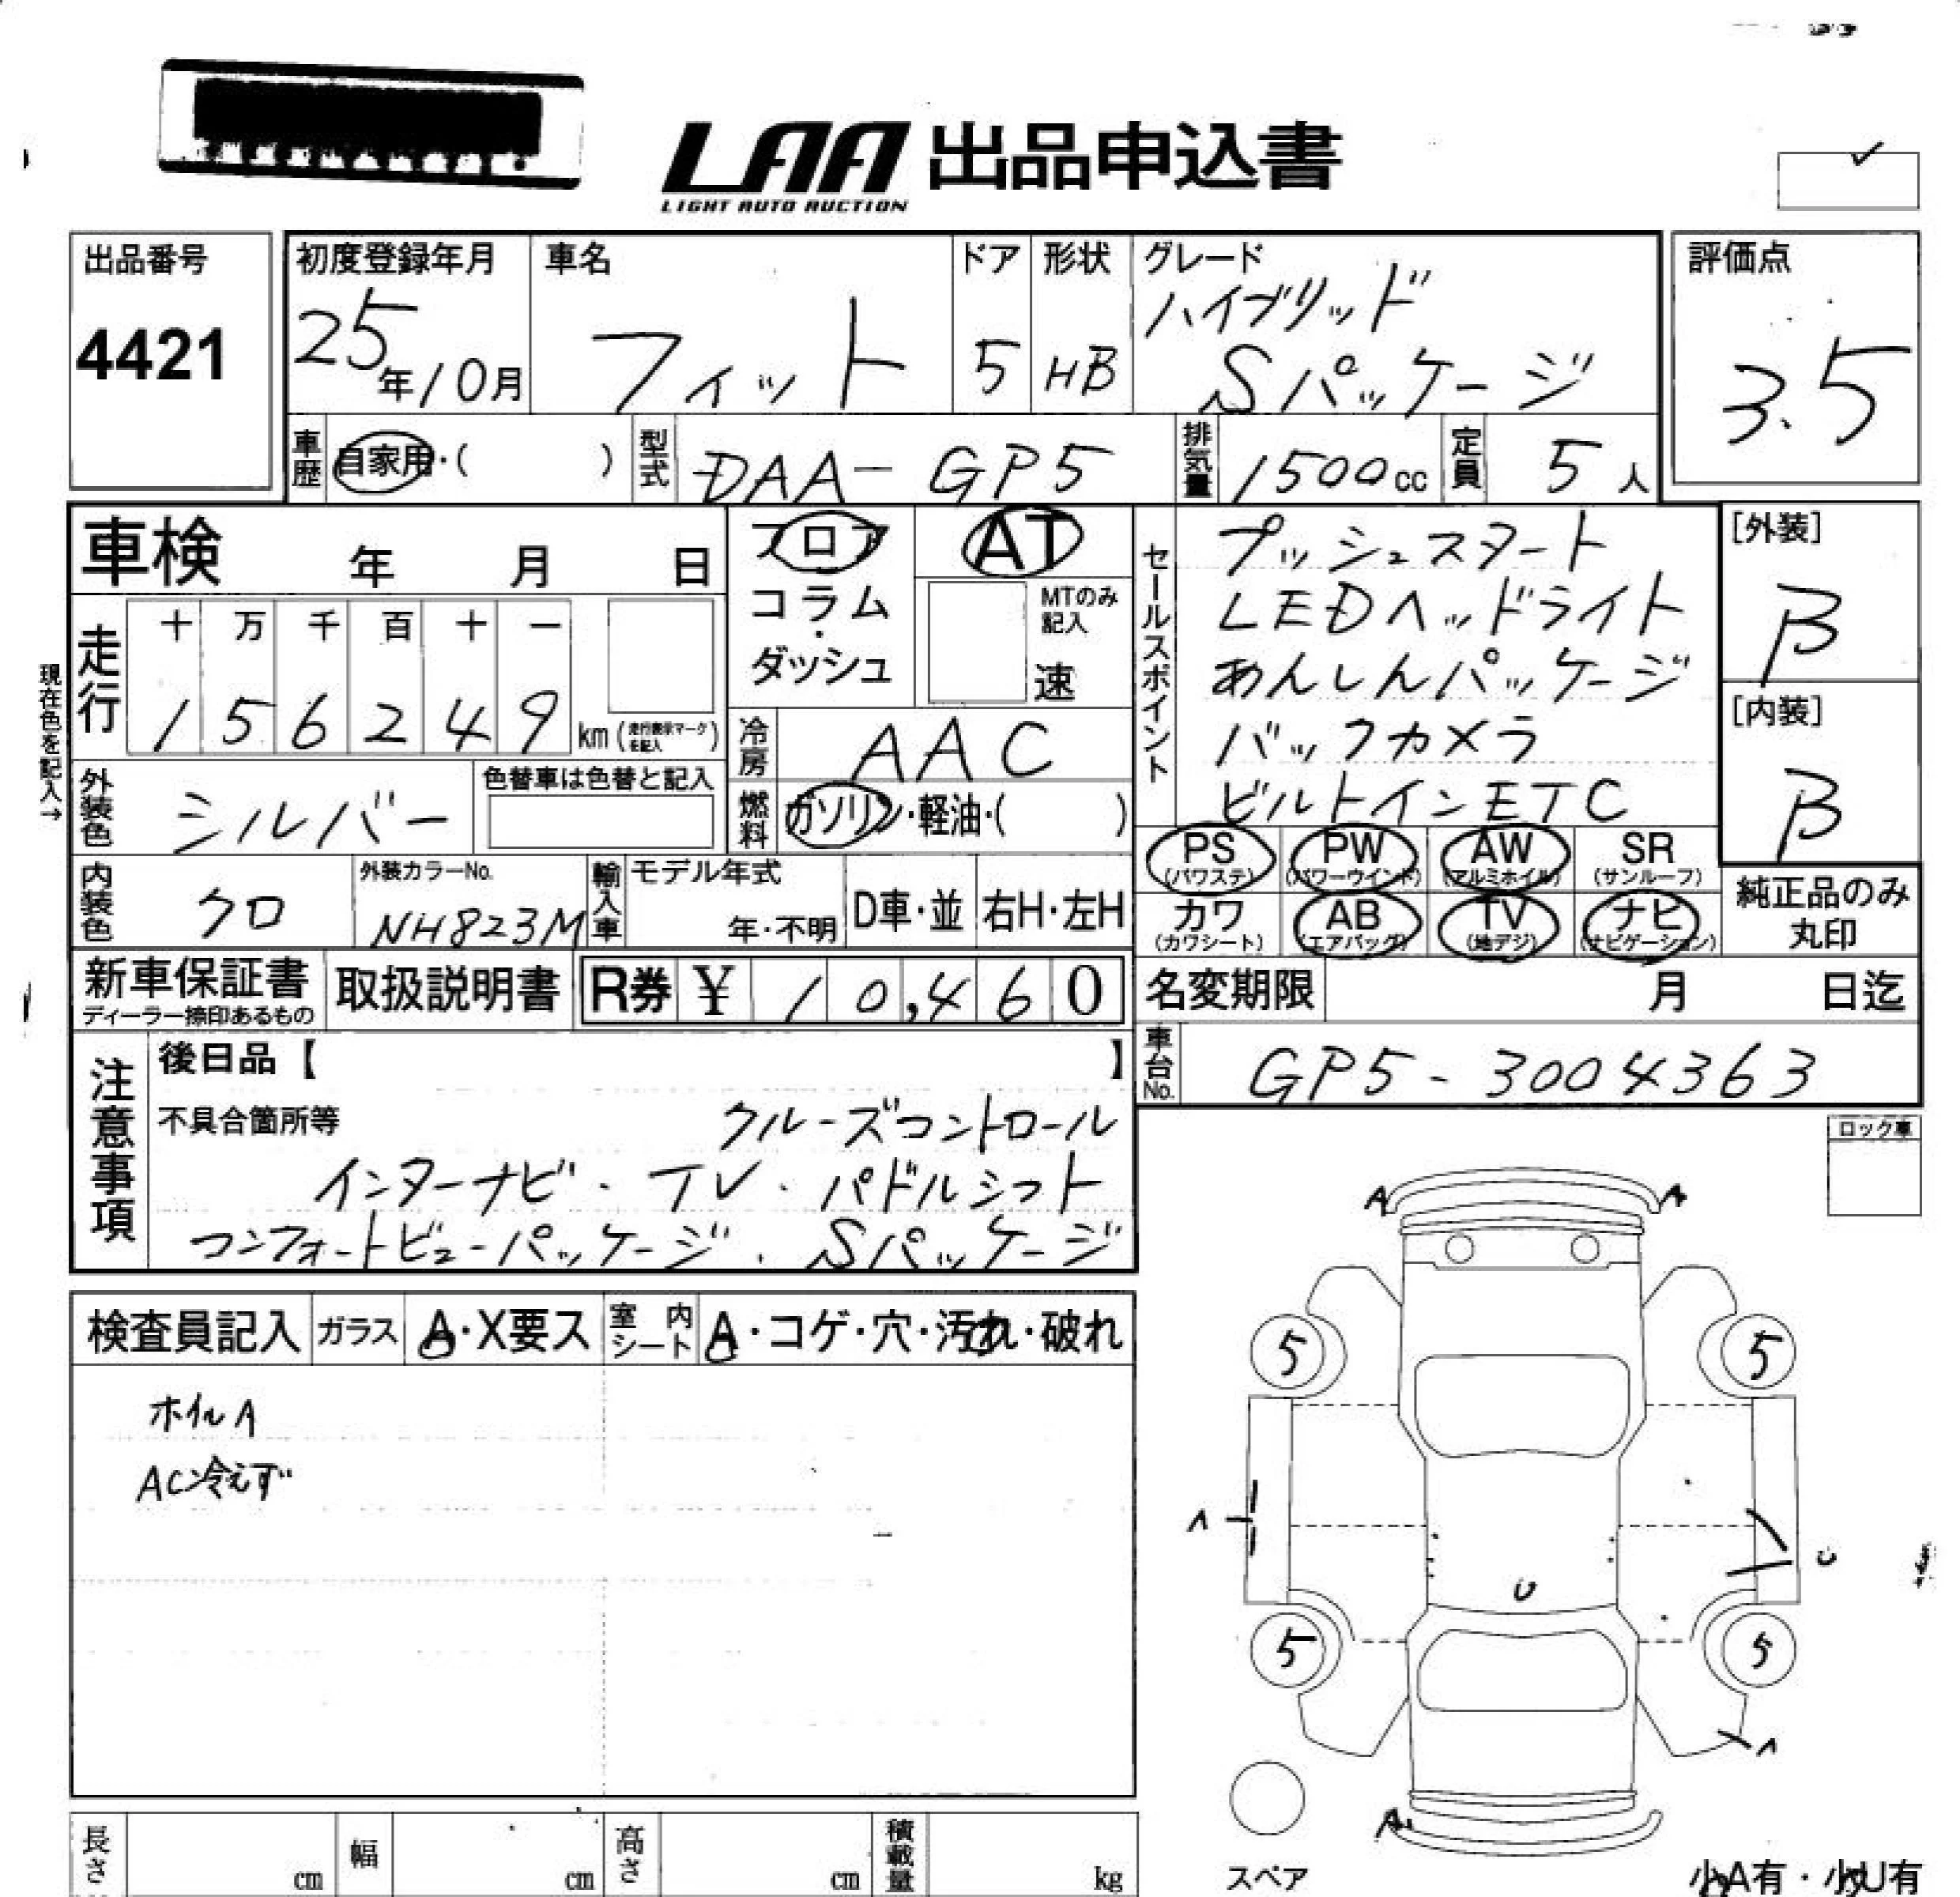 LAA 出品申込書
LIGHT AUTO AUCTION
出品番号
4421
初度登録年月
25年10月
車名
フィット
ドア
5
形状
HB
グレード
ハイブリッド
Sパッケージ
評価点
3.5
車歴
自家用・( )
型式
DAA-GP5
排気量
1500cc
定員
5人
車検 年 月 日
フロア
コラム
・
ダッシュ
AT
MTのみ
記入
速
セールスポイント
プッシュスタート
LEDヘッドライト
あんしんパッケージ
バックカメラ
ビルトインETC
[外装]
B
[内装]
B
現在色を記入→
走行
十 万 千 百 十 一
1 5 6 2 4 9 km
冷房
AAC
外装色
シルバー
色替車は色替と記入
燃料
ガソリン・軽油・( )
PS
(パワステ)
PW
(パワーウインド)
AW
(アルミホイル)
SR
(サンルーフ)
カワ
(カワシート)
AB
(エアバッグ)
TV
(地デジ)
ナビ
(ナビゲーション)
純正品のみ
丸印
内装色
クロ
外装カラーNo.
NH823M
輸入車
モデル年式
年・不明
D車・並
右H・左H
新車保証書
ディーラー捺印あるもの
取扱説明書
R券 ¥ 10,460
名変期限 月 日迄
車台No.
GP5-3004363
注意事項
後日品【 】
不具合箇所等
クルーズコントロール
インターナビ・TV・パドルシフト
コンフォートビューパッケージ・Sパッケージ
ロック車
検査員記入
ガラス
A・X要ス
室内シート
A・コゲ・穴・汚れ・破れ
ホイルA
AC冷えず
A A
5 5
A
U
U
5 5
A
A
スペア
長さ cm
幅 cm
高さ cm
積載量 kg
小A有・小U有